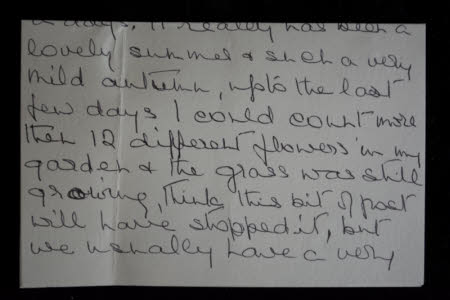 days. It really has been a
lovely summer & such a very
mild autumn, upto the last
few days I could count more
then 12 different flowers in my
garden & the grass was still
growing, think this bit of frost
will have stopped it, but
we usually have a very